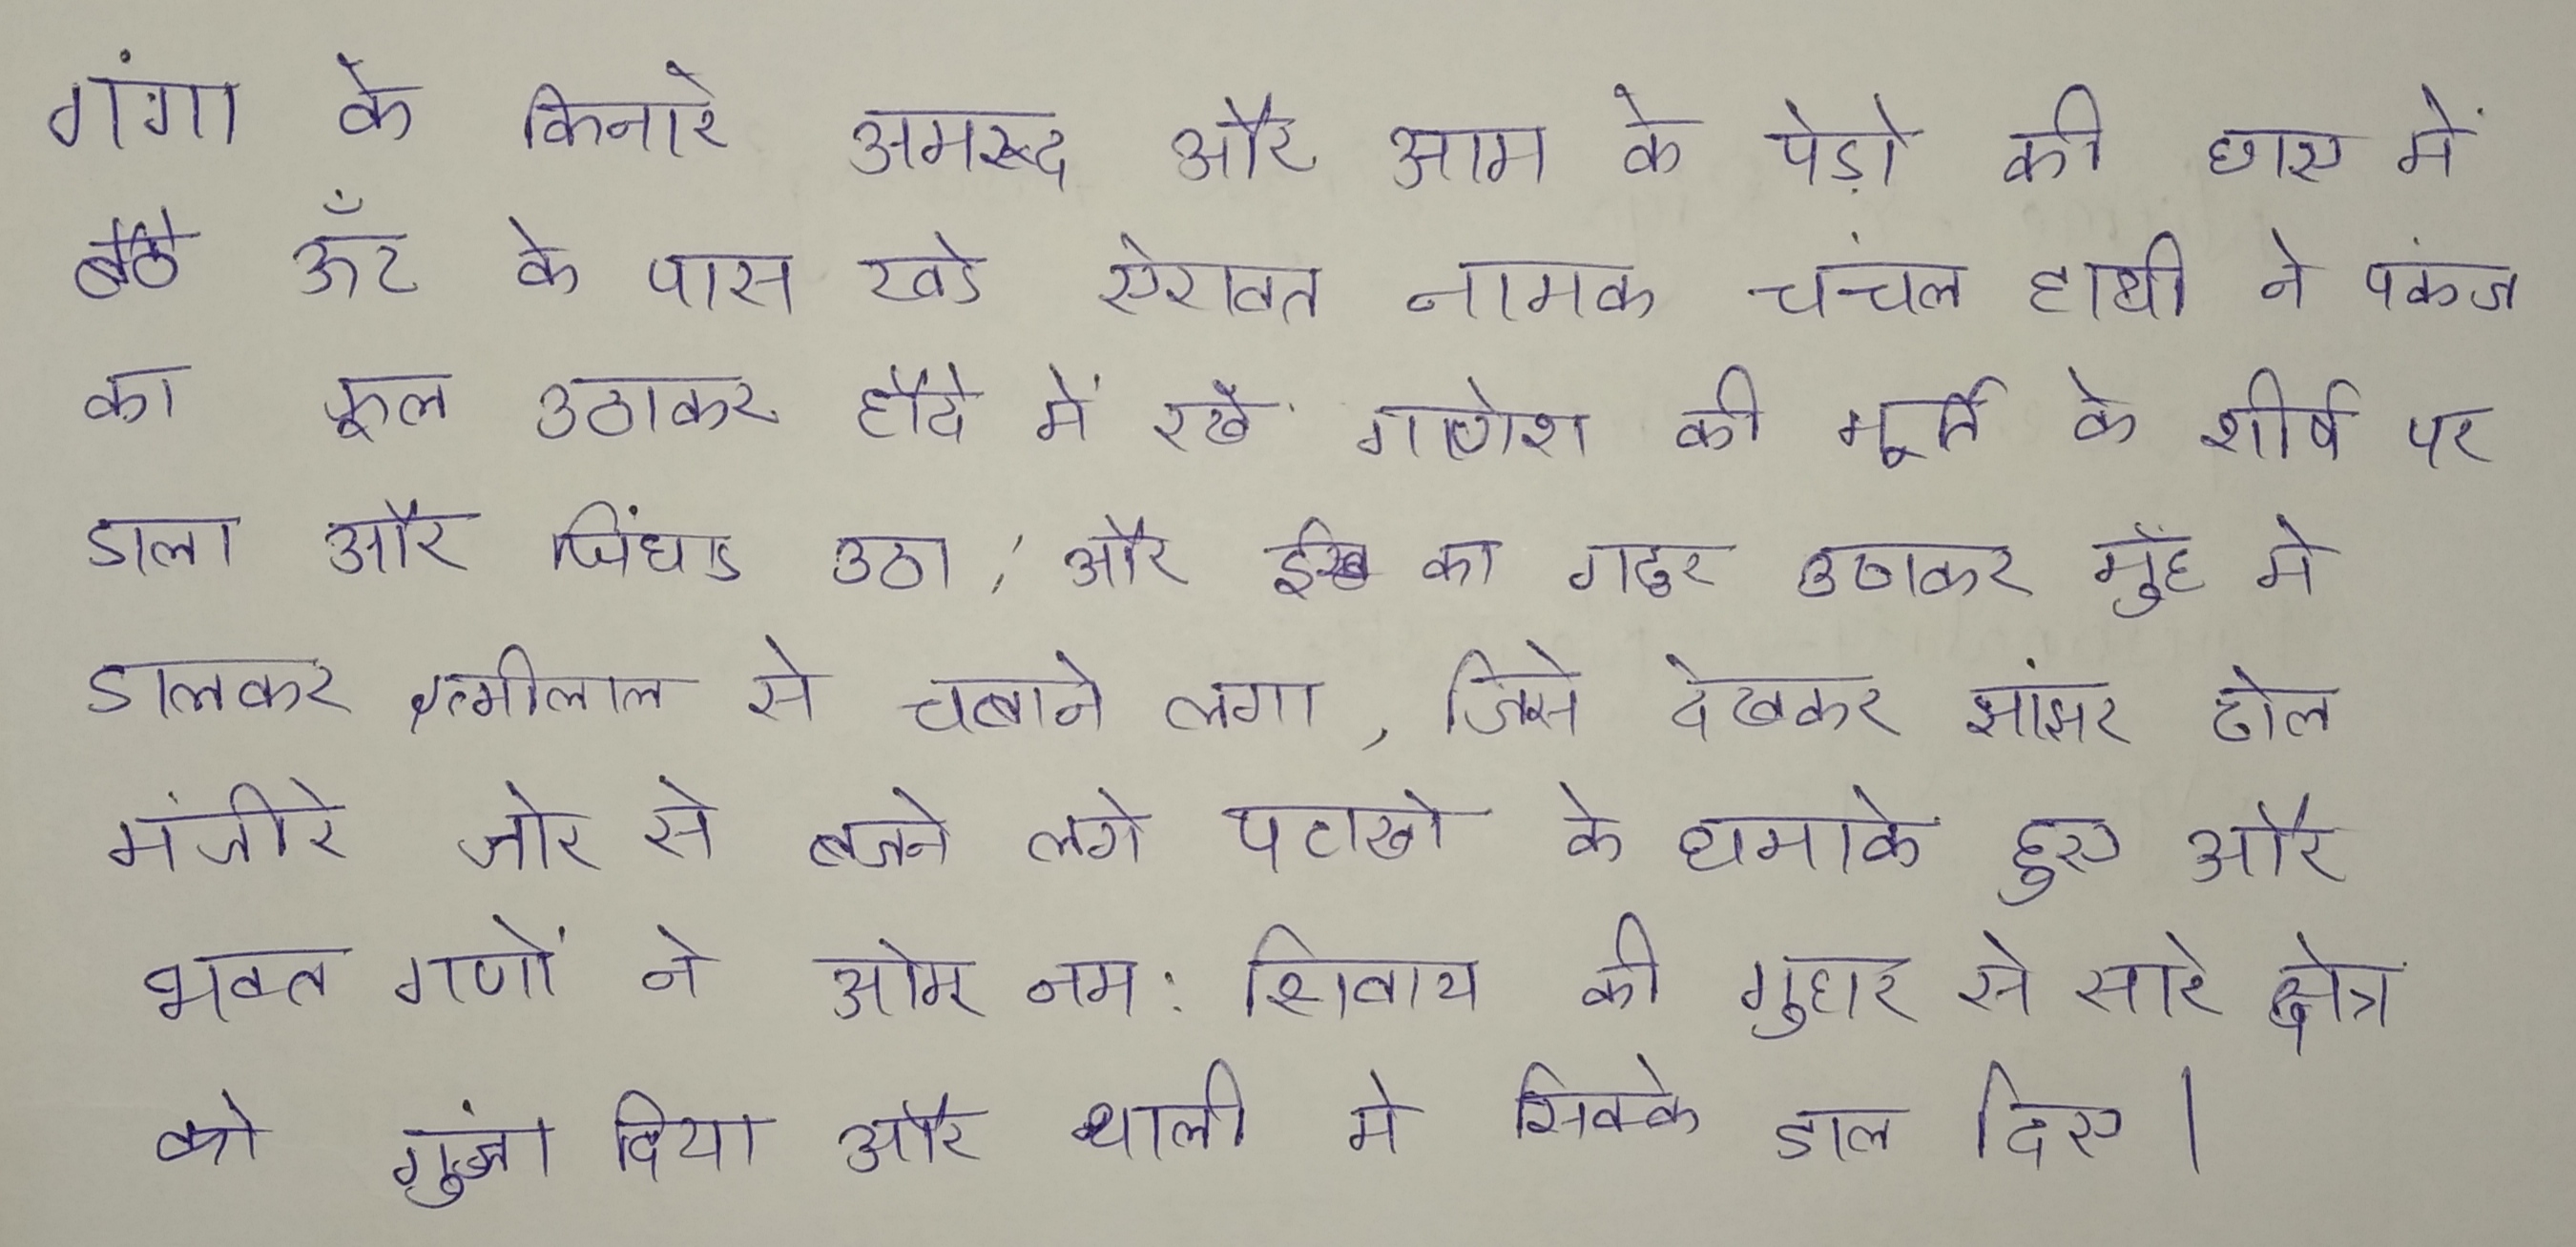 गंगा के किनारे अमरूद और आम के पेड़ो की छाए में
बैठे ऊँट के पास खडे ऐरावत नामक चंचल हाथी ने पंकज
का फूल उठाकर हौदे में रखें गणेश की मूर्ति के शीर्ष पर
डाला और चिंघाड उठा, और ईख का गट्ठर उठाकर मुँह मे
डालकर इत्मीलाल से चबाने लगा, जिसे देखकर झांझर ढोल
मंजीरे जोर से बजने लगे पटाखो के धमाके हुए और
भक्त गणों ने ओम नम: शिवाय की गुहार से सारे क्षेत्र
को गुंजा दिया और थाली मे सिक्के डाल दिए।